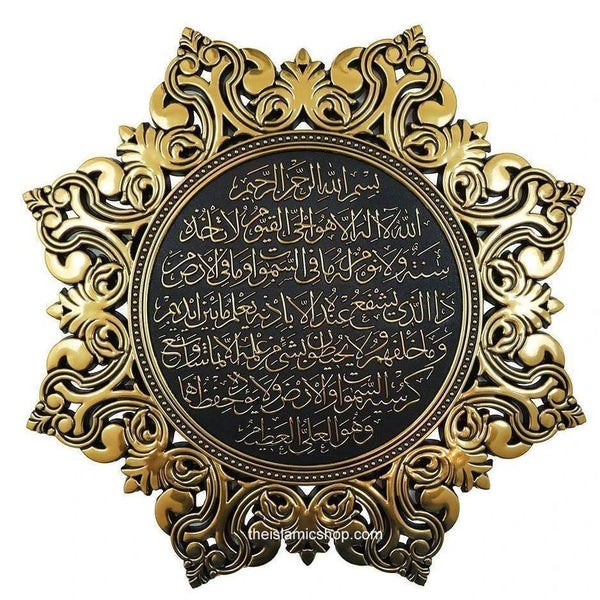 بسم الله الرحمن الرحيم
الله لا اله الا هو الحي القيوم لا تأخذه
سنة ولا نوم له ما في السموات وما في الارض
ذا الذي يشفع عنده الا باذنه يعلم ما بين ايديهم
وما خلفهم ولا يحيطون بشيء من علمه الا بما شاء وسع
كرسيه السموات والارض ولا يؤده حفظهما
وهو العلي العظيم
theislamicshop.com